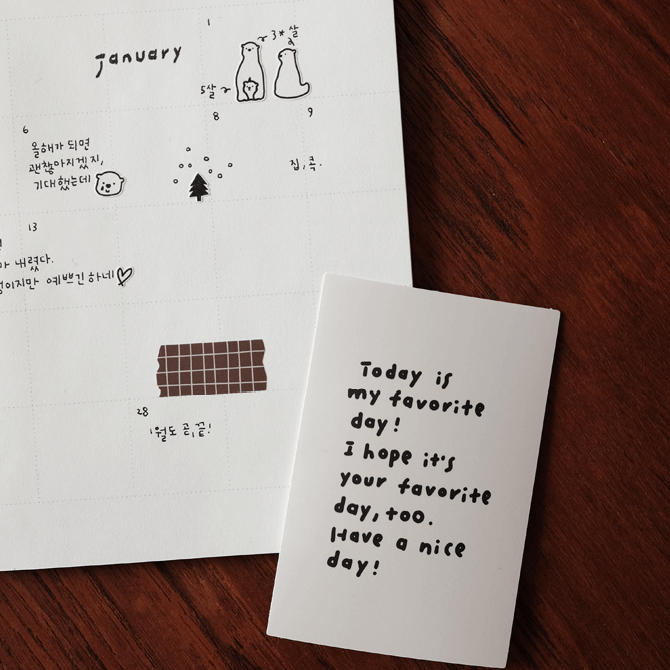 january
1
3* 살
5살
6
올해가 되면
괜찮아지겠지,
기대했는데
8
9
집,콕.
13
내렸다.
예쁘긴하네
28
1월도 곧,끝!
Today is
my favorite
day!
I hope it's
your favorite
day, too.
Have a nice
day!